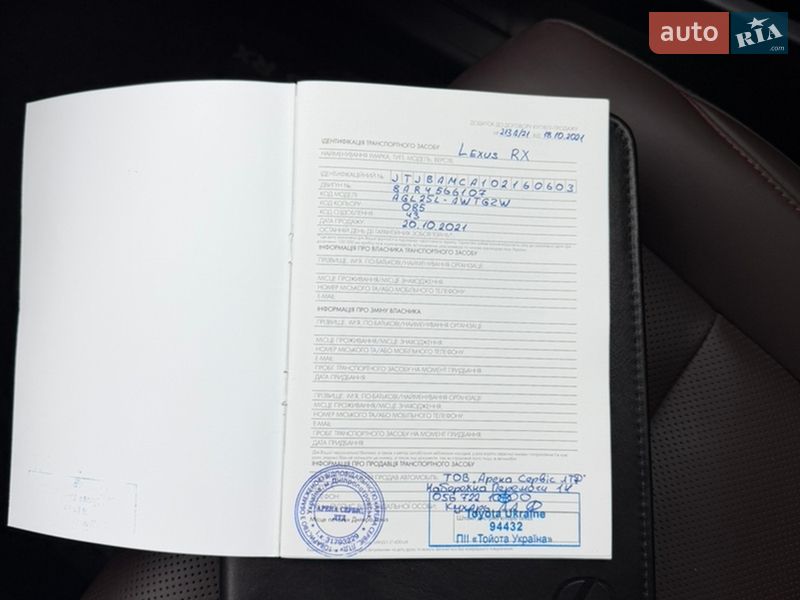 auto RIA.com
ДОДАТОК ДО ДОГОВОРУ КУПІВЛІ-ПРОДАЖУ
№ 213А/21 ВІД 18.10.2021
ІДЕНТИФІКАЦІЯ ТРАНСПОРТНОГО ЗАСОБУ
НАЙМЕНУВАННЯ (МАРКА, ТИП, МОДЕЛЬ, ВЕРСІЯ) Lexus RX
ІДЕНТИФІКАЦІЙНИЙ № JTJBAMCA102160603
ДВИГУН № 8AR4566107
КОД МОДЕЛІ AGL25L-AWTGZW
КОД КОЛЬОРУ 085
КОД ОЗДОБЛЕННЯ 43
ДАТА ПРОДАЖУ 20.10.2021
ОСТАННІЙ ДЕНЬ ДІЇ ГАРАНТІЙНИХ ЗОБОВ'ЯЗАНЬ*
ІНФОРМАЦІЯ ПРО ВЛАСНИКА ТРАНСПОРТНОГО ЗАСОБУ
ПРІЗВИЩЕ, ІМ'Я, ПО БАТЬКОВІ/НАЙМЕНУВАННЯ ОРГАНІЗАЦІЇ
МІСЦЕ ПРОЖИВАННЯ/МІСЦЕ ЗНАХОДЖЕННЯ
НОМЕР МІСЬКОГО ТА/АБО МОБІЛЬНОГО ТЕЛЕФОНУ
E-MAIL
ІНФОРМАЦІЯ ПРО ЗМІНУ ВЛАСНИКА
ПРІЗВИЩЕ, ІМ'Я, ПО БАТЬКОВІ/НАЙМЕНУВАННЯ ОРГАНІЗАЦІЇ
МІСЦЕ ПРОЖИВАННЯ/МІСЦЕ ЗНАХОДЖЕННЯ
НОМЕР МІСЬКОГО ТА/АБО МОБІЛЬНОГО ТЕЛЕФОНУ
E-MAIL
ПРОБІГ ТРАНСПОРТНОГО ЗАСОБУ НА МОМЕНТ ПРИДБАННЯ
ДАТА ПРИДБАННЯ
ПРІЗВИЩЕ, ІМ'Я, ПО БАТЬКОВІ/НАЙМЕНУВАННЯ ОРГАНІЗАЦІЇ
МІСЦЕ ПРОЖИВАННЯ/МІСЦЕ ЗНАХОДЖЕННЯ
НОМЕР МІСЬКОГО ТА/АБО МОБІЛЬНОГО ТЕЛЕФОНУ
E-MAIL
ПРОБІГ ТРАНСПОРТНОГО ЗАСОБУ НА МОМЕНТ ПРИДБАННЯ
ДАТА ПРИДБАННЯ
ІНФОРМАЦІЯ ПРО ПРОДАВЦЯ ТРАНСПОРТНОГО ЗАСОБУ
ТОВ "Арена Сервіс ЛТД"
Набережна Перемоги
056 722
АРЕНА СЕРВІС
ЛТД
31793229
Toyota Ukraine
94432
ПІІ «Тойота Україна»